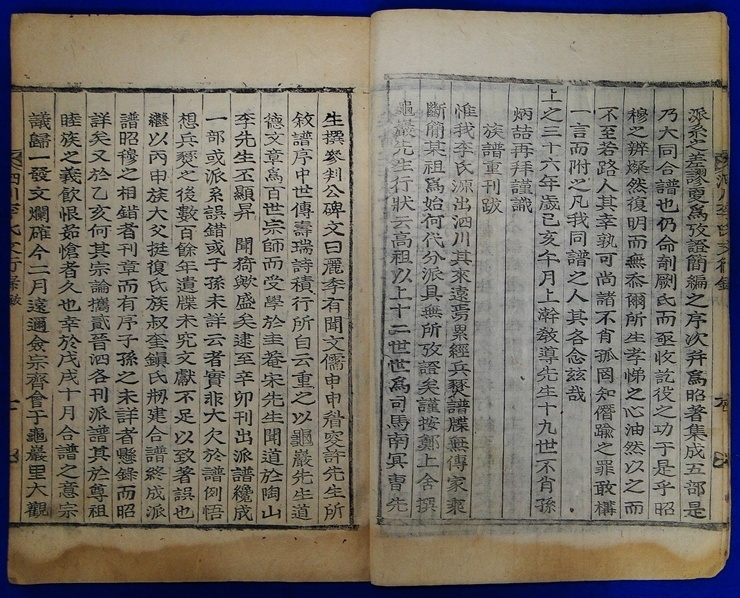 派系之差謬更爲攷證簡編之序次幷爲昭著集成五部是
乃大同合譜也仍命剞劂氏而亟收訖役之功于是乎昭
穆之辨燦然復明而無忝爾所生孝悌之心油然以之而
不至若路人其幸孰可尚諸不肖孤罔知僭踰之罪敢構
一言而附之凡我同譜之人其各念玆哉
上之三十六年歲己亥午月上澣敎導先生十九世不肖孫
炳喆再拜謹識
族譜重刊跋
惟我李氏源出泗川其來遠焉累經兵燹譜牒無傳家乘
斷簡其祖爲始何代分派具無所攷證矣謹按鄭上舍撰
龜巖先生行狀云高祖以上十二世世爲司馬南冥曺先
生撰參判公碑文曰麗李有聞文儒申申眷窓許先生所
敘譜序中世傳壽瑞詩積行所自云重之以龜巖先生道
德文章爲百世宗師而受學於圭菴宋先生聞道於陶山
李先生丕顯昇聞猗歟盛矣逮至辛卯刊出派譜纔成
一部或派系誤錯或子孫未詳云者實非大欠於譜例悟
想兵燹之後數百餘年遺牒未究文獻不足以致著誤也
繼以丙申族大父挺復氏族叔奎鎭氏將建合譜終成派
譜昭穆之相錯者刊章而有序子孫之未詳者懸錄而昭
詳矣又於乙亥何其宗論攜貳晉泗各刊派譜其於尊祖
睦族之義飮恨茹愴者久也幸於戊戌十月合譜之意宗
議歸一發文爛確今二月遠邇僉宗齊會于龜巖里大觀